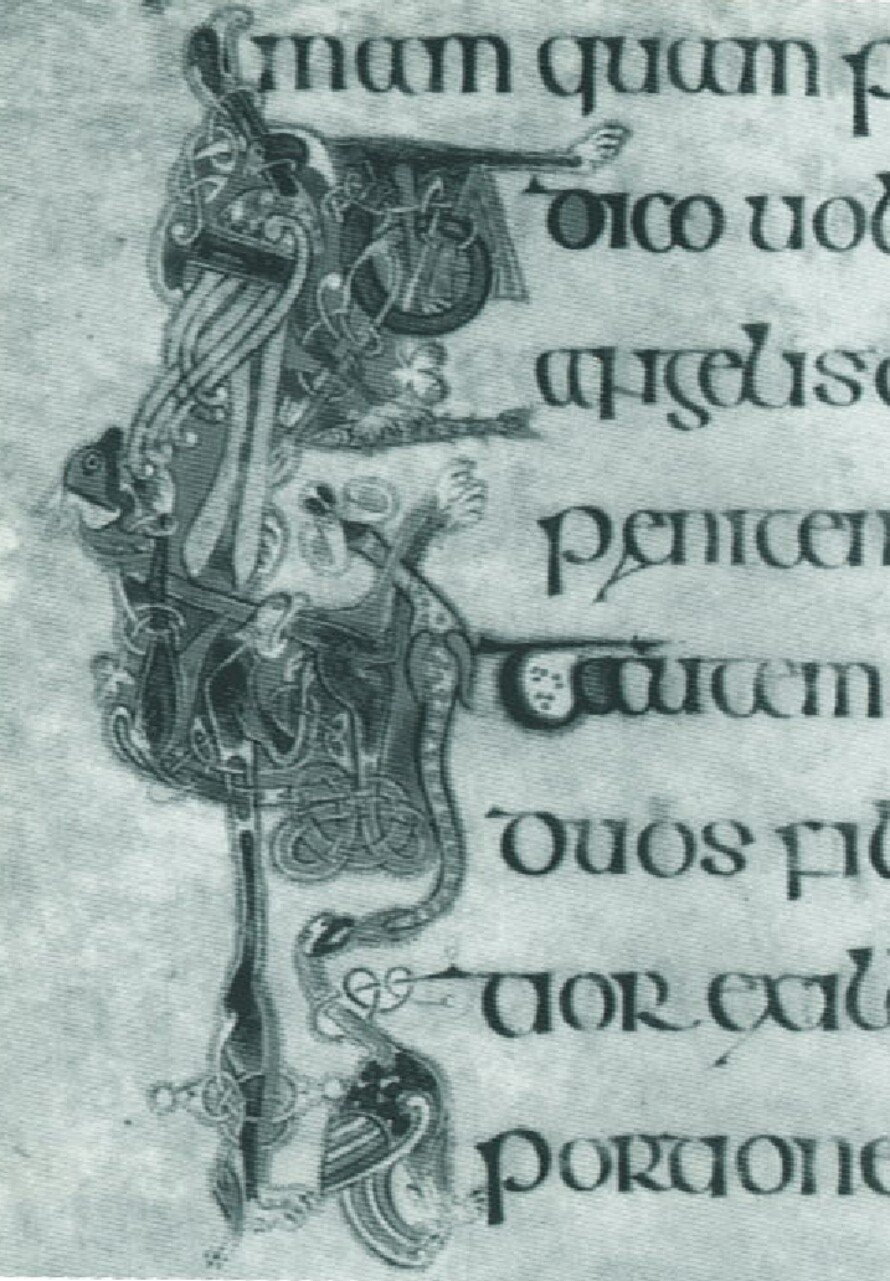 mam quam p
dico uob
angelis d
peniten
t autem
duos fil
tior exili
portione